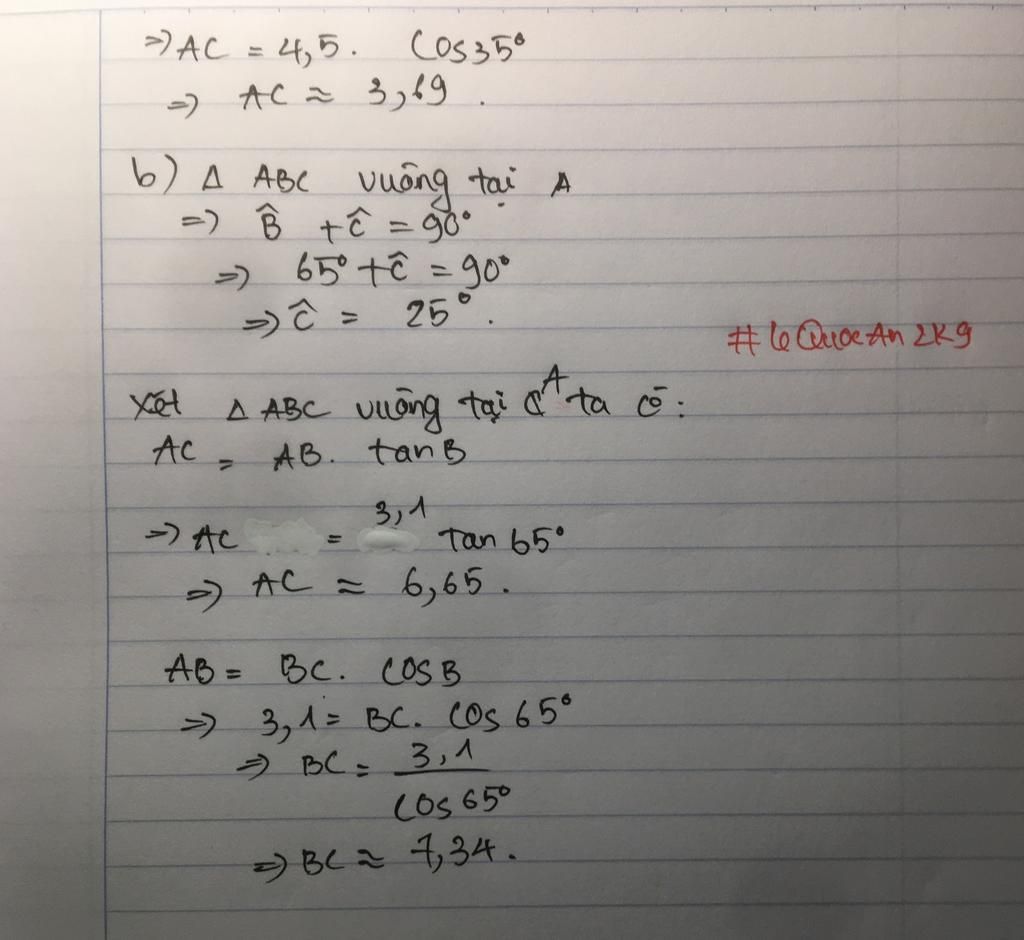 => AC = 4,5. Cos35°
=> AC ≈ 3,69.
b) Δ ABC vuông tại A
=> B̂ + Ĉ = 90°
=> 65° + Ĉ = 90°
=> Ĉ = 25°.
# Le Quoc An 2K9
Xét Δ ABC vuông tại A ta có:
AC = AB. tanB
=> AC = 3,1 tan 65°
=> AC ≈ 6,65.
AB = BC. COSB
=> 3,1 = BC. Cos 65°
=> BC = 3,1
Cos 65°
=> BC ≈ 7,34.